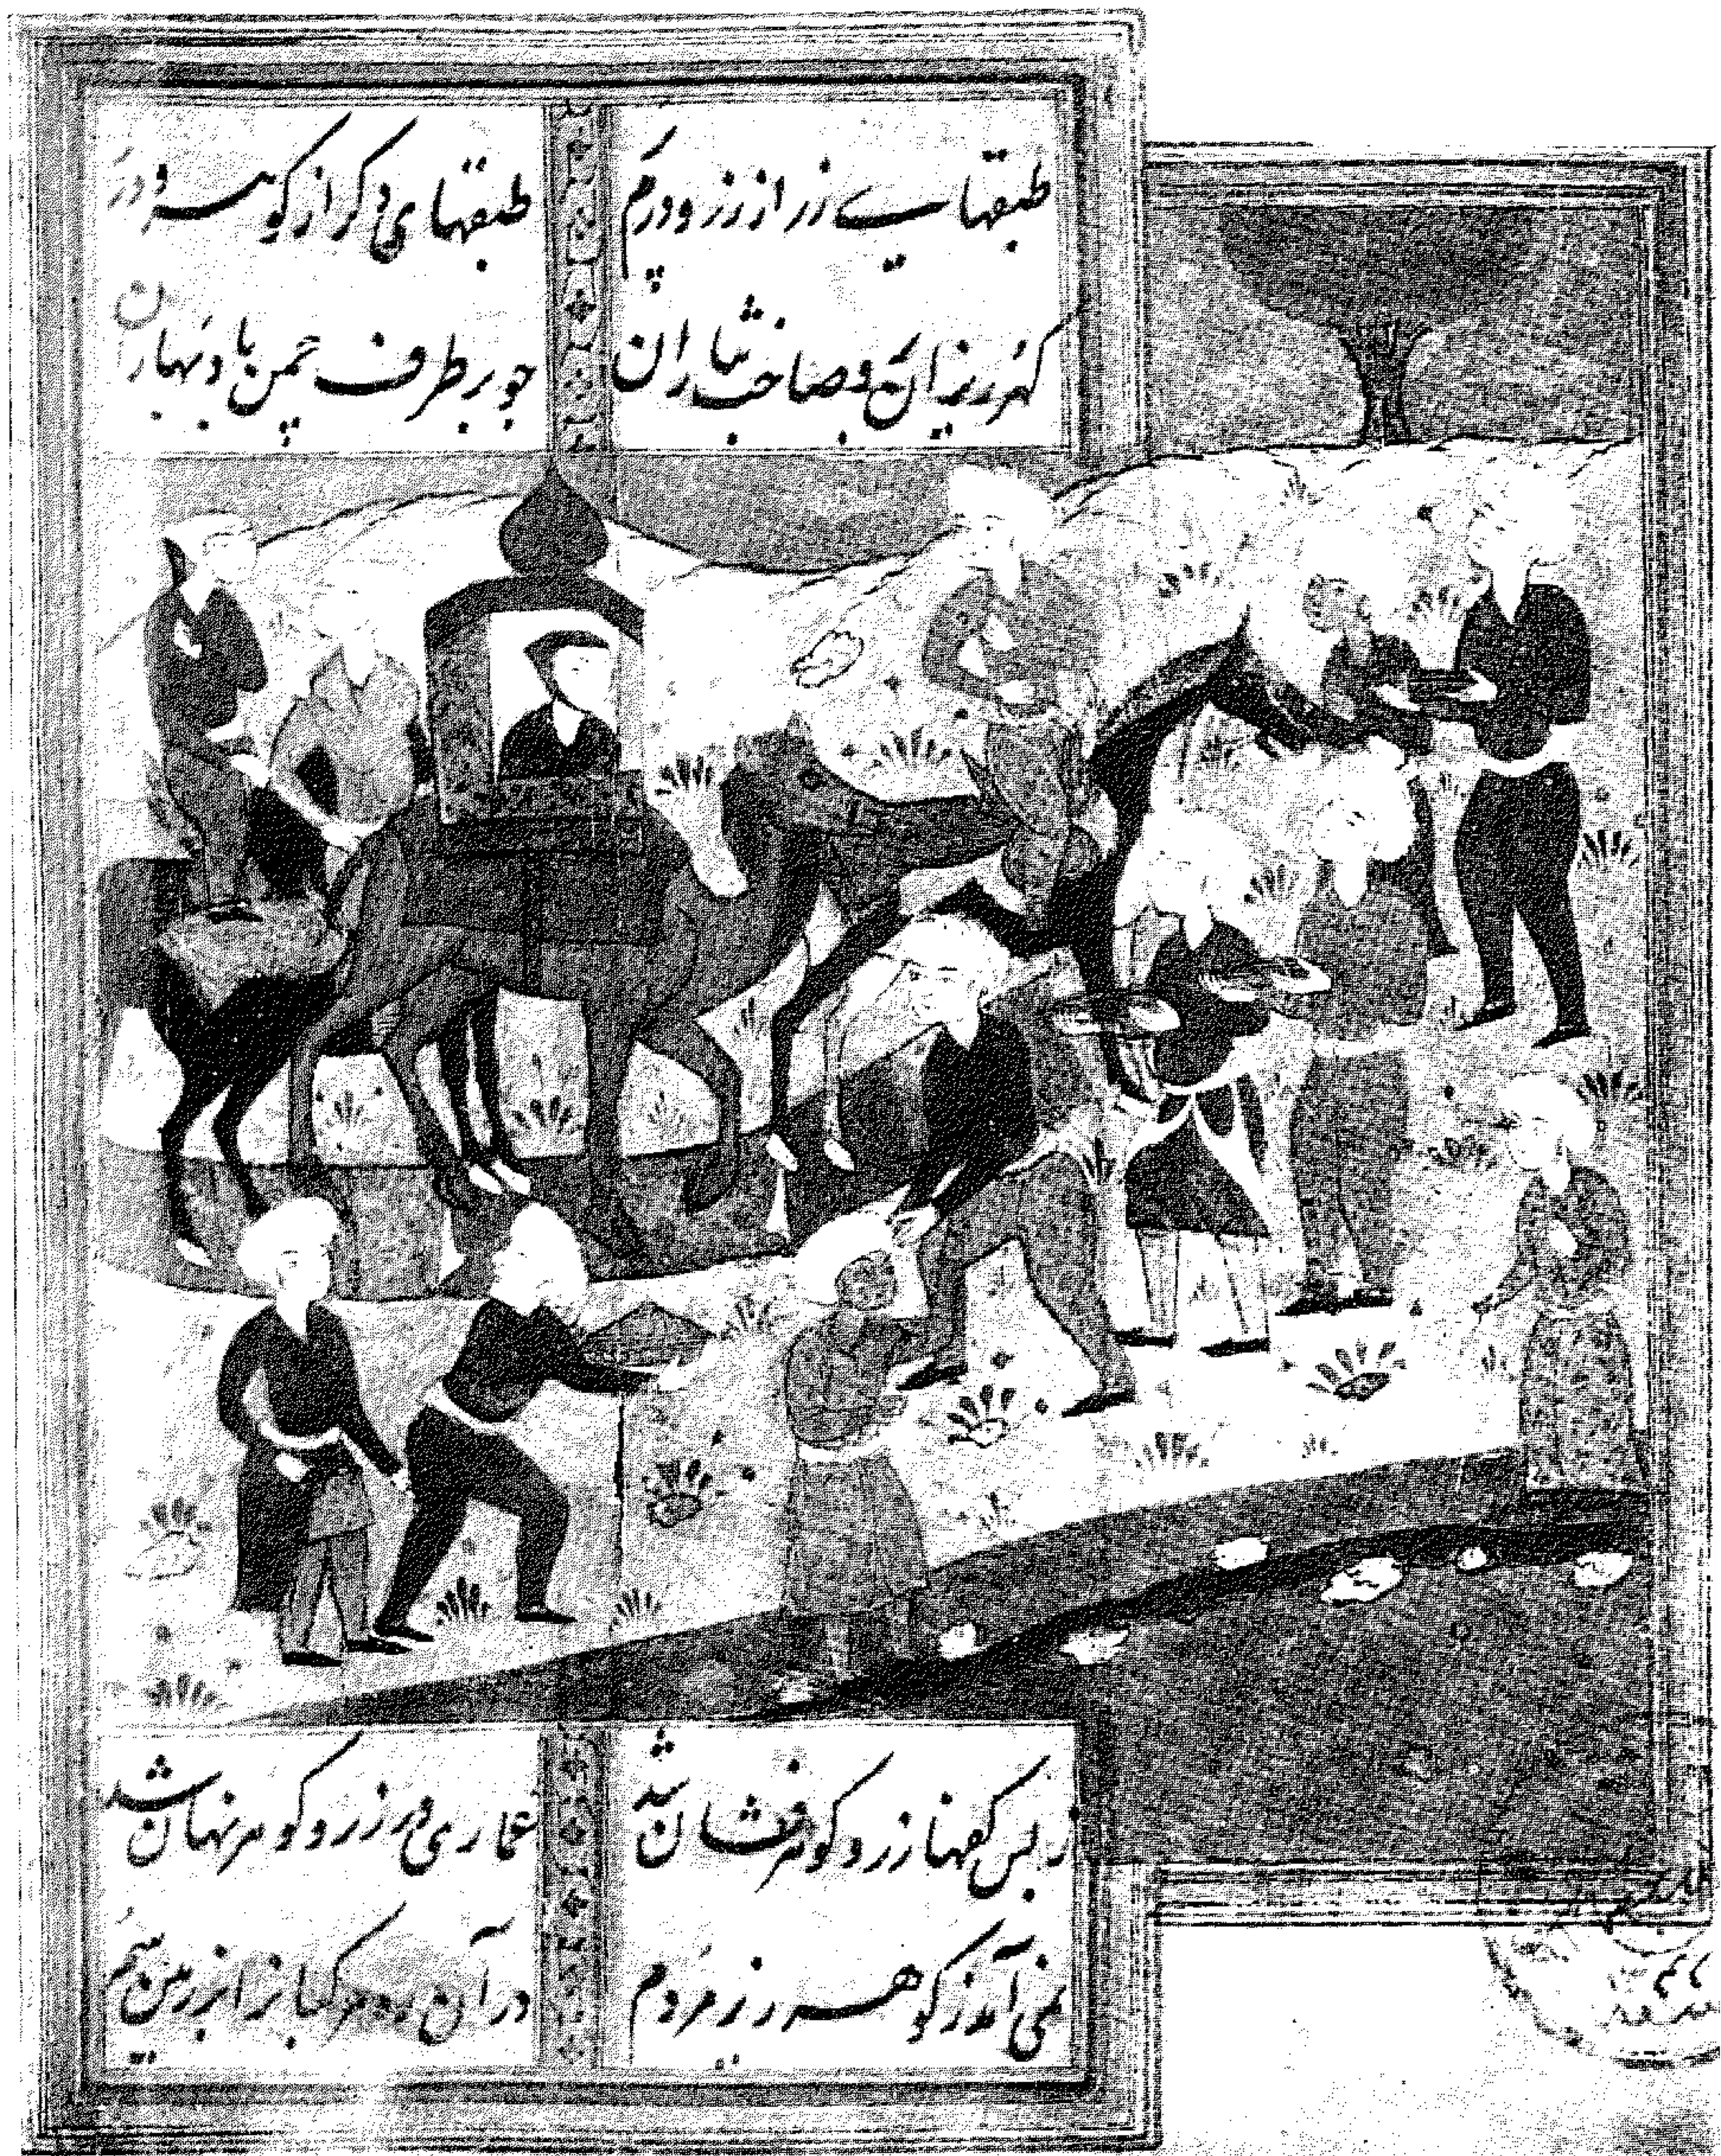 طبقهای زر از زر و درم پر طبقهای دگر از گوهر و در
گهرریزان برو صاحب نثاران چو بر طرف چمن باد بهاران
ز بس کفها زر و گوهر فشان شد عماری در زر و گوهر نهان شد
نمی آمد ز گوهر ز مردم در آن ره مرکبان را بر زمین سم